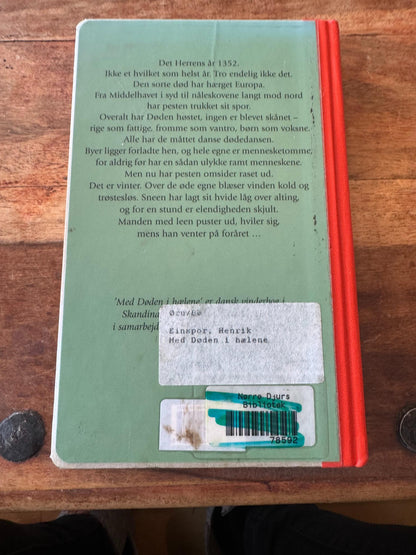 Det Herrens år 1352.
Ikke et hvilket som helst år. Tro endelig ikke det.
Den sorte død har hærget Europa.
Fra Middelhavet i syd til nåleskovene langt mod nord
har pesten trukket sit spor.
Overalt har Døden høstet, ingen er blevet skånet –
rige som fattige, fromme som vantro, børn som voksne.
Alle har de måttet danse dødedansen.
Byer ligger forladte hen, og hele egne er mennesketomme,
for aldrig før har en sådan ulykke ramt menneskene.
Men nu har pesten omsider raset ud.
Det er vinter. Over de øde egne blæser vinden kold og
trøstesløs. Sneen har lagt sit hvide låg over alting,
og for en stund er elendigheden skjult.
Manden med leen puster ud, hviler sig,
mens han venter på foråret ...
'Med Døden i hælene' er dansk vinderbog i
Skandina
i samarbejd
Einspor, Henrik
Med Døden i hælene
Nørre Djurs
Bibliotek
78592